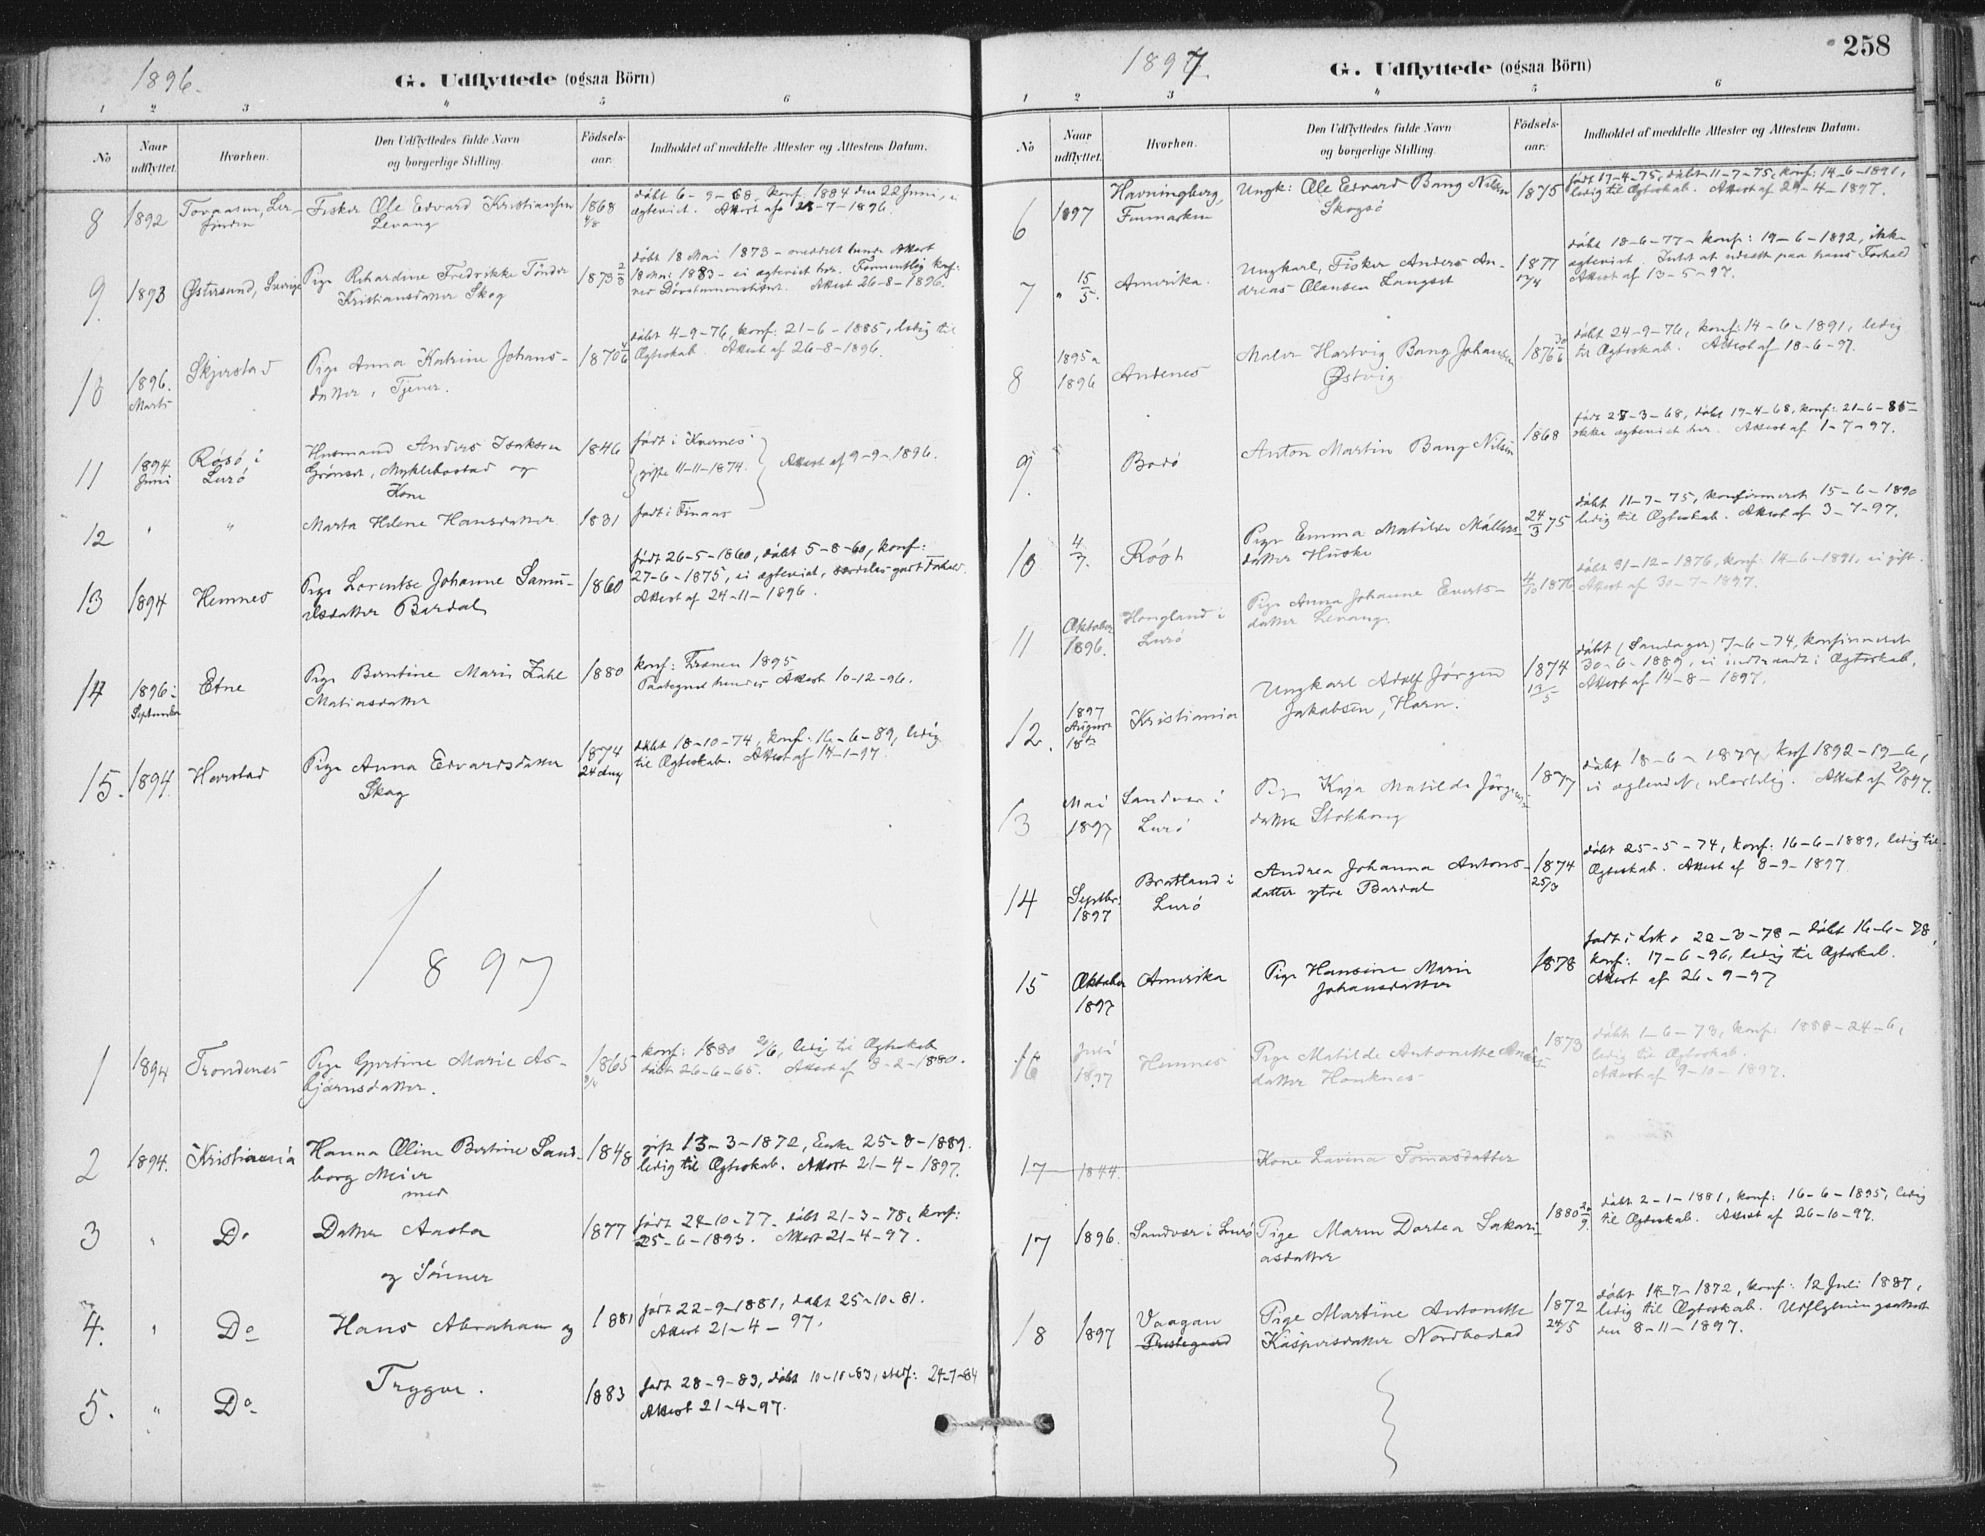 1896.
G. Udflyttede (ogsaa Börn)
1 2 3 4 5 6
No
Naar udflyttet.
Hvorhen.
Den Udflyttedes fulde Navn og borgerlige Stilling.
Födsels-aar.
Indholdet af meddelte Attester og Attestens Datum.
8 1892 Fisker Ole Edvard Kristiansen 1868 döbt 6-9-68, konf. 1884 den 22 Juni,
Levang 4/8 ægteviet. Attest afg 28-7-1896.
döbt 18 Mai 1873 - meddelt hende Attest
9. 1893 Östersund, Sverige Pige Rikardine Fredrikke Tönder 1873 2/3 18 Mai 1883 - ei ægteviet her. Formentlig konf:
Kristiansdatter Skog Attest 26-8-1896.
döbt 4-9-76, konf: 21-6-1885, ledig til
10 1896. Skjerstad Pige Anna Katrine Johans- 1870 Ægteskab Attest af 26-8-1896.
Marts datter, Tjener.
11 1894 Rössö i Husmand Anders Isaksen 1846 født i Kvernes
Juni Lurö Grönset, Myklebostad og gifte 11-11-1874. Attest af 9-9-1896.
Kone
12 " " Marta Helene Hansdatter 1831 født i
født 26-5-1860, döbt 5-8-60, konf:
13 1894 Hemnes Pige Lorentse Johanne Samu- 1860 27-6-1875, ei ægteviet, særdeles godt Forhold.
elsdatter Bardal Attest af 24-11-1896.
14 1896: Etne Pige Berntine Marie Zahl 1880 konf: Trænen 1895
September Matiasdatter Paategnet hendes Attest 10-12-96.
15. 1894. Havstad Pige Anna Edvardsdatter 1874 döbt 18-10-74, konf: 16-6-89, ledig
Skog 24 Aug til Ægteskab. Attest af 14-1-97.
1897
1 1894 Trondenes Pige Gjertine Marie As- 1865 konf: 1880 20/6, ledig til Ægteskab
björnsdatter. döbt 26-6-65. Attest af 8-2-1880.
2 1894. Kristiania Hanna Oline Bertine Sand- 1848 gift 13-3-1872, Enke 25-8-1889.
borg Meier ledig til Ægteskab. Attest 21-4-1897.
med
3 " Do Datter Aasta 1877 født 24-10-77. döbt 21-3-78, konf:
25-6-1893. Attest 21-4-97.
og Sönner
4. " Do Hans Abraham og 1881 født 22-9-1881, døbt 25-10-81.
Attest 21-4-97.
5. " Do Trygve. 1883 født 28-9-83, döbt 10-10-83, 24-7-84
Attest 21-4-97.
1897.
G. Udflyttede (ogsaa Börn)
258
1 2 3 4 5 6
No
Naar udflyttet.
Hvorhen.
Den Udflyttedes fulde Navn og borgerlige Stilling.
Födsels-aar.
Indholdet af meddelte Attester og Attestens Datum.
6 1897 Havningberg, Ungk: Ole Edvard Bang Nilsen 1875 født 17-4-75, döbt 11-7-75, konf: 14-6-1891,
Finmarken Skogsö ledig til Ægteskab. Attest af 29-4-1897.
döbt 18-6-77 - konf: 19-6-1892, ikke
7 " 15/5. Amerika. Ungkarl, Fisker Anders An- 1877 ægteviet. Intet at udsætte paa hans Forhold
dreas Olausen Langset 17/4 Attest af 13-5-97.
döbt 24-9-76, konf: 14-6-1891, ledig
8 1895 a 1896 Andenes Maler Hartvig Bang Johansen 1876 20/6 til Ægteskab. Attest af 18-6-97.
Östvig
født 28-3-68, döbt 19-4-68, konf: 21-6-85-
9. Bodö Anton Martin Bang Nilsen 1868 ikke ægteviet her. Attest af 1-7-97.
döbt 11-7-75, konfirmeret 15-6-1890
10 4/7. Pige Emma Matilde Möllers- 24/3 75 ledig til Ægteskab. Attest af 3-7-97.
datter Huske
döbt 31-12-1876, konf: 14-6-1891, ei gift.
11 Oktober Hongland i Pige Anna Johanne Everts- 4/10 1876 Attest af 30-7-1897.
1896. Lurö datter Levang.
döbt (Sandager) 7-6-74, konfirmeret
12. 1897 Kristiania Ungkarl Adolf Jörgen 1874 30-6-1889, ei indtraadt i Ægteskab,
August 18de Jakobsen, Havn. 13/5 Attest af 14-8-1897.
13 Mai Sandvær i Pige Kaja Matilde Jörgens- 1877 döbt 18-6-1877, konf 1892-19-6,
1897 Lurö datter Stokkong ei ægteviet, ulastelig. Attest af 20/ 1897.
14 Septbr: Bratland i Andrea Johanna Antons- 1874 döbt 25-5-74, konf: 16-6-1889, ledig til
1897 Lurö datter ytre Bardal 25/3 Ægteskab. Attest af 8-9-1897
15 Oktober Amerika Pige Hansine Marie 1878 født i 22-3-78 - döbt 16-6-78,
1897 Johansdatter konf: 17-6-96, ledig til Ægteskab.
Attest af 26-9-97
16 Juli Hemnes Pige Matilde Antonette 1873 döbt 1-6-73, konf: 1888-24-6,
1897 datter ledig til Ægteskab.
Attest af 9-10-1897.
17 1844. Kone Lavina Tomasdatter
17 1896. Sandvær i Lurö Pige Maren Dortea Sakari- 1880 20/9. döbt 2-1-1881, konf: 16-6-1895, ledig
asdatter til Ægteskab. Attest af 26-10-97.
18 1897 Vaagan Pige Martine Antonette 1872 döbt 14-7-1872, konf: 12 Juli 1887,
Prestegaard Kaspersdatter Nordbostad 24/5 ledig til Ægteskab. Udflytningsattest
den 8-11-1897.